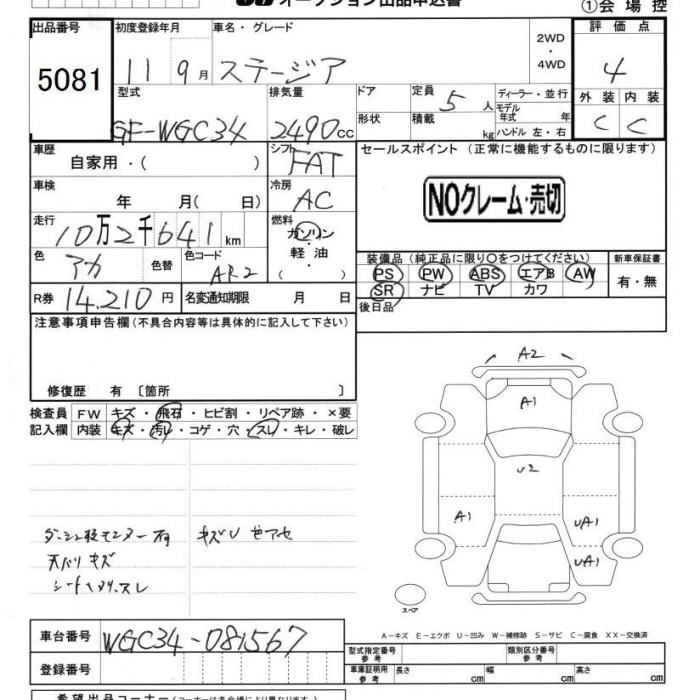 オークション出品申込書
①会場控
出品番号
5081
初度登録年月
11 9月
車名・グレード
ステージア
2WD
・
4WD
評価点
4
外装 内装
C C
型式
GF-WGC34
排気量
2490cc
ドア
形状
定員
5人
積載
kg
ディーラー・並行
モデル年式 年
ハンドル 左・右
車歴
自家用・( )
シフト
FAT
セールスポイント (正常に機能するものに限ります)
NOクレーム・売切
車検
年 月( 日)
冷房
AC
走行
10万2千641km
燃料
ガソリン
・
軽油
( )
色
アカ
色替
色コード
AR2
装備品 (純正品に限り○をつけてください)
PS PW ABS エアB AW
SR ナビ TV カワ
新車保証書
有・無
R券 14,210円
名変通知期限 月 日
後日品
注意事項申告欄(不具合内容等は具体的に記入して下さい)
修復歴 有 〔箇所 〕
検査員
記入欄
FW キズ・飛石・ヒビ割・リペア跡・×要
内装 キズ・汚レ・コゲ・穴・スレ・キレ・破レ
天バリキズ
A2
A1
U2
A1
UA1
UA1
スペア
A－キズ E－エクボ U－凹み W－補修跡 S－サビ C－腐食 XX－交換済
車台番号
WGC34-081567
登録番号
型式指定番号
参考
類別区分番号
参考
車庫証明用
参考
長さ cm
幅 cm
高さ cm
希望出品コーナー